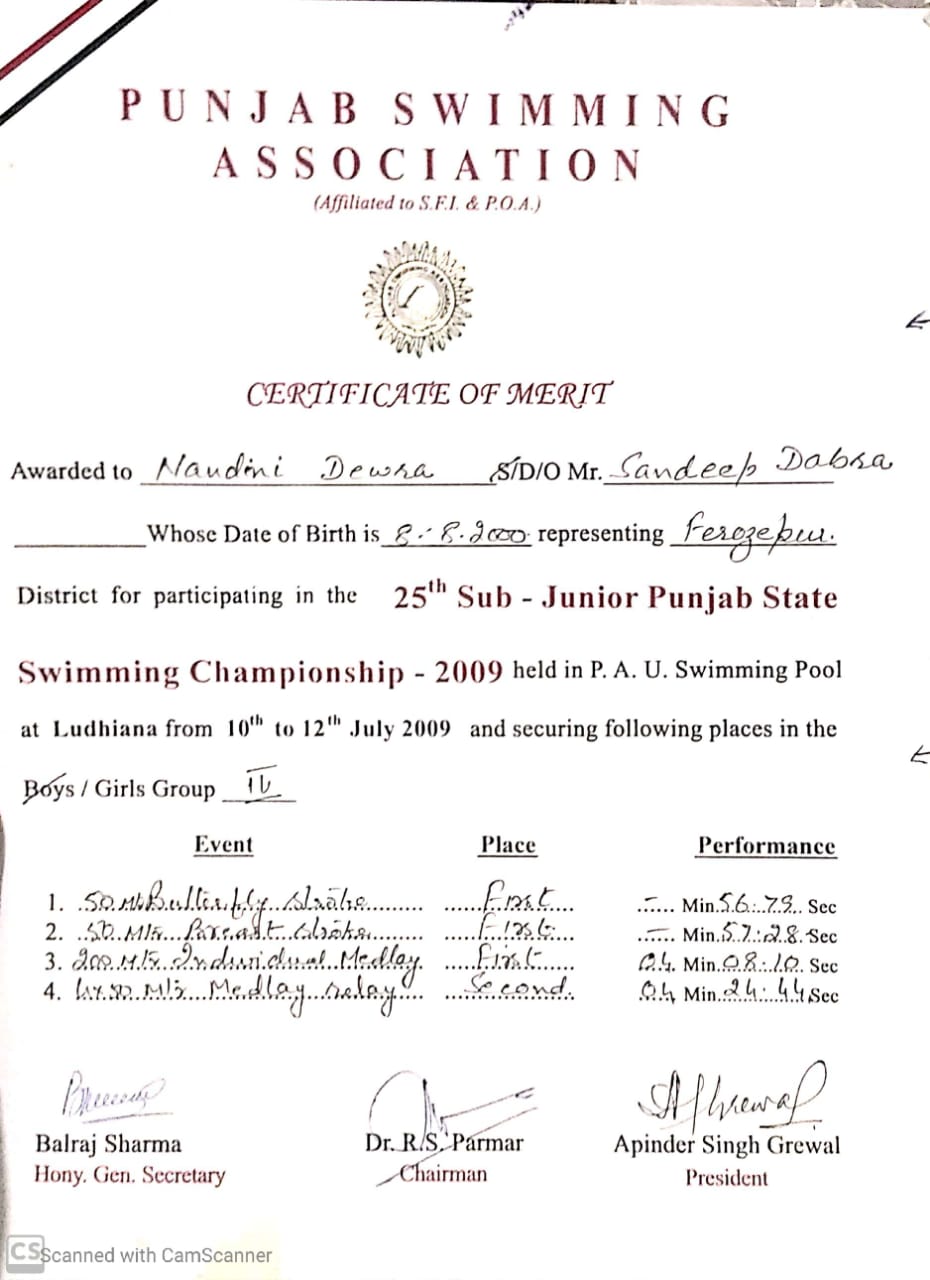 PUNJAB SWIMMING
ASSOCIATION
(Affiliated to S.F.I. & P.O.A.)
CERTIFICATE OF MERIT
Awarded to Nandini Dewra S/D/O Mr. Sandeep Dabra
Whose Date of Birth is 8-8-2000 representing Ferozepur.
District for participating in the 25th Sub - Junior Punjab State
Swimming Championship - 2009 held in P. A. U. Swimming Pool
at Ludhiana from 10th to 12th July 2009 and securing following places in the
Boys / Girls Group IV
Event Place Performance
1. 50 Mt Butterfly Stroke First - Min. 56:79 Sec
2. 50 Mts Breast Stroke First - Min. 57:28 Sec
3. 200 Mts Individual Medlay First 04 Min. 08:10 Sec
4. 4x50 Mts Medlay relay Second 04 Min. 24:44 Sec
Balraj Sharma Dr. R.S. Parmar Apinder Singh Grewal
Hony. Gen. Secretary Chairman President
CS Scanned with CamScanner